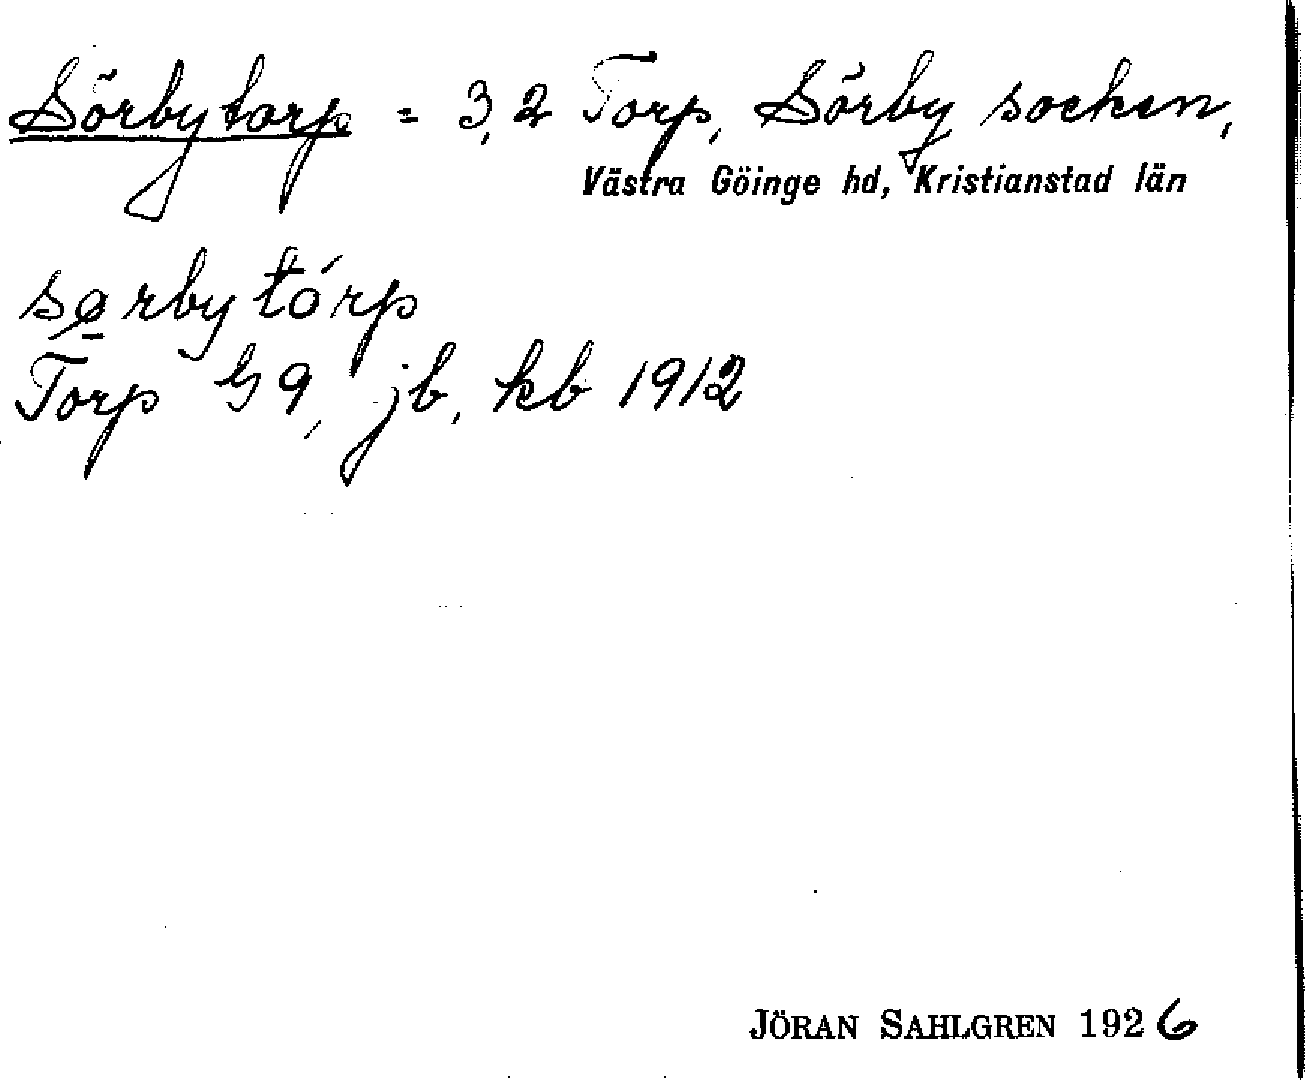 Sörbytorp = 3,2 Torp, Sörby socken,
Västra Göinge hd, Kristianstad län
sørbytórp
Torp G 9, jb, kb 1912
JÖRAN SAHLGREN 1926